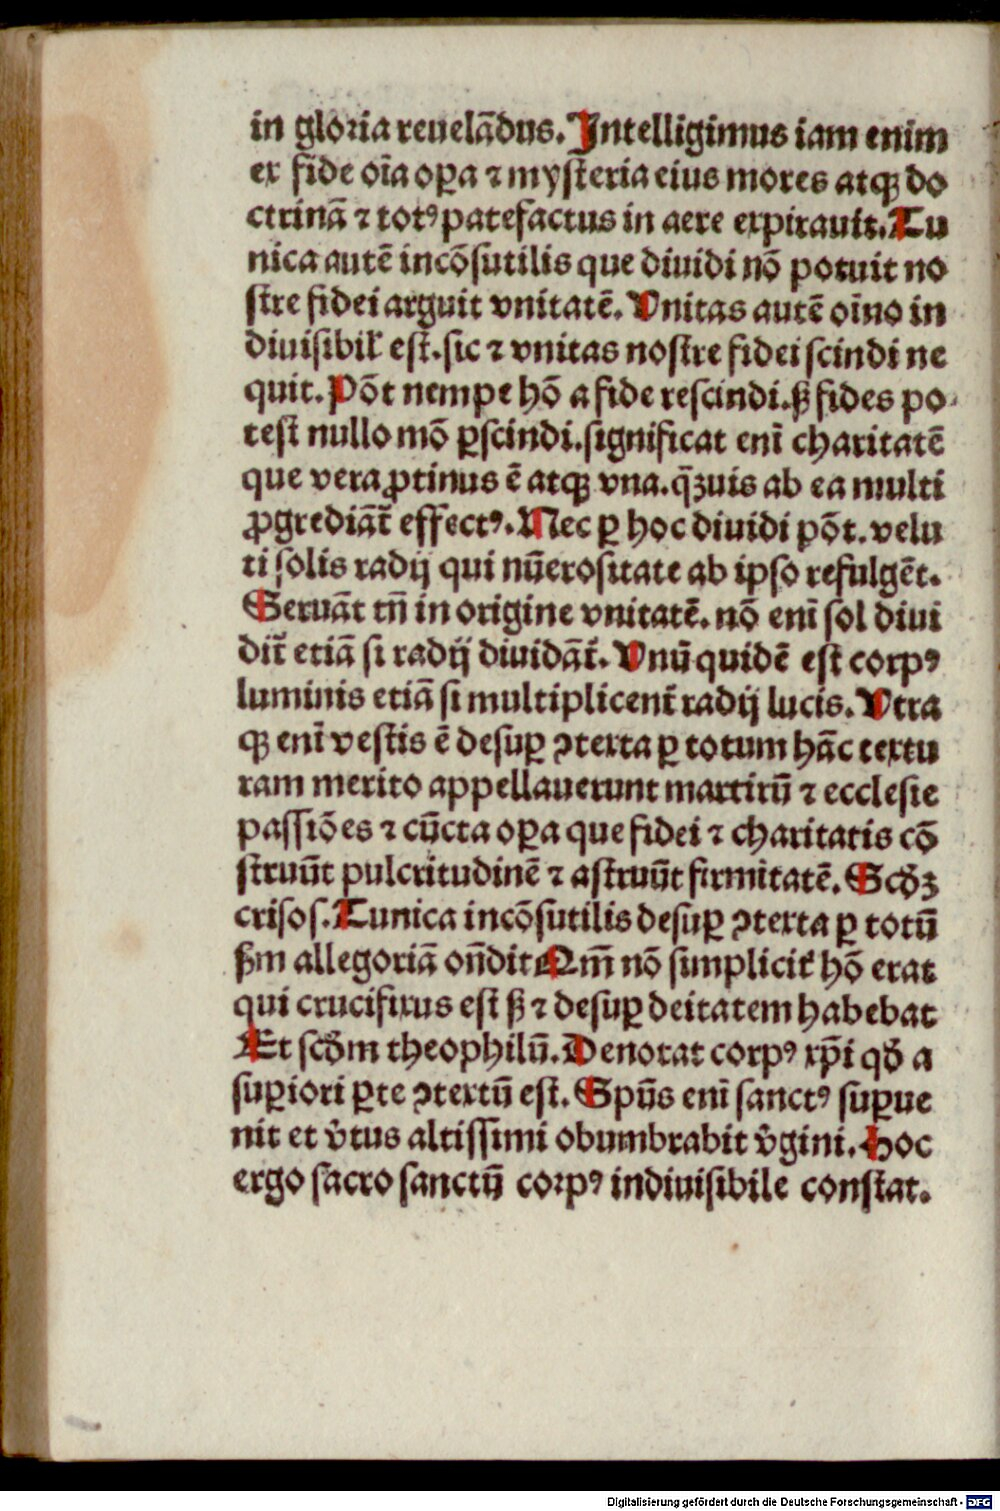 in gloria reuelãdus. Intelligimus iam enim
ex fide oĩa oꝑa ⁊ mysteria eius mores atqꝫ do
ctrinã ⁊ totꝰ patefactus in aere expirauit. Tu
nica autẽ incõsutilis que diuidi nõ potuit no
stre fidei arguit vnitatẽ. Vnitas autẽ oĩno in
diuisibil̕ est. sic ⁊ vnitas nostre fidei scindi ne
quit. Põt nempe hõ a fide rescindi. sꝫ fides po
test nullo mõ ꝑscindi. significat enĩ charitatẽ
que vera ꝓtinus ẽ atqꝫ vna. q̃ꝫuis ab ea multi
ꝓgrediãt᷑ effectꝰ. Nec ꝑ hoc diuidi põt. velu
ti solis radij qui nũerositate ab ipso refulgẽt.
Seruãt tñ in origine vnitatẽ. nõ enĩ sol diui
dit᷑ etiã si radij diuidãt᷑. Vnũ quidẽ est corpꝰ
luminis etiã si multiplicent᷑ radij lucis. Vtra
qꝫ enĩ vestis ẽ desuꝑ ꝯtexta ꝑ totum hãc textu
ram merito appellauerunt martirũ ⁊ ecclesie
passiões ⁊ cũcta oꝑa que fidei ⁊ charitatis cõ
struũt pulcritudinẽ ⁊ astruũt firmitatẽ. Scd̕ꝫ
crisos. Tunica incõsutilis desuꝑ ꝯtexta ꝑ totũ
ẞm allegoriã oñdit Qm̃ nõ simplicit᷑ hõ erat
qui crucifixus est sꝫ ⁊ desuꝑ deitatem habebat
Et scd̕m theophilũ. Denotat corpꝰ xp̃i qd̕ a
suꝑiori ꝑte ꝯtextũ est. Spũs enĩ sanctꝰ suꝑue
nit et v̕tus altissimi obumbrabit v̕gini. Hoc
ergo sacro sanctũ corpꝰ indiuisibile constat.
Digitalisierung gefördert durch die Deutsche Forschungsgemeinschaft - DFG